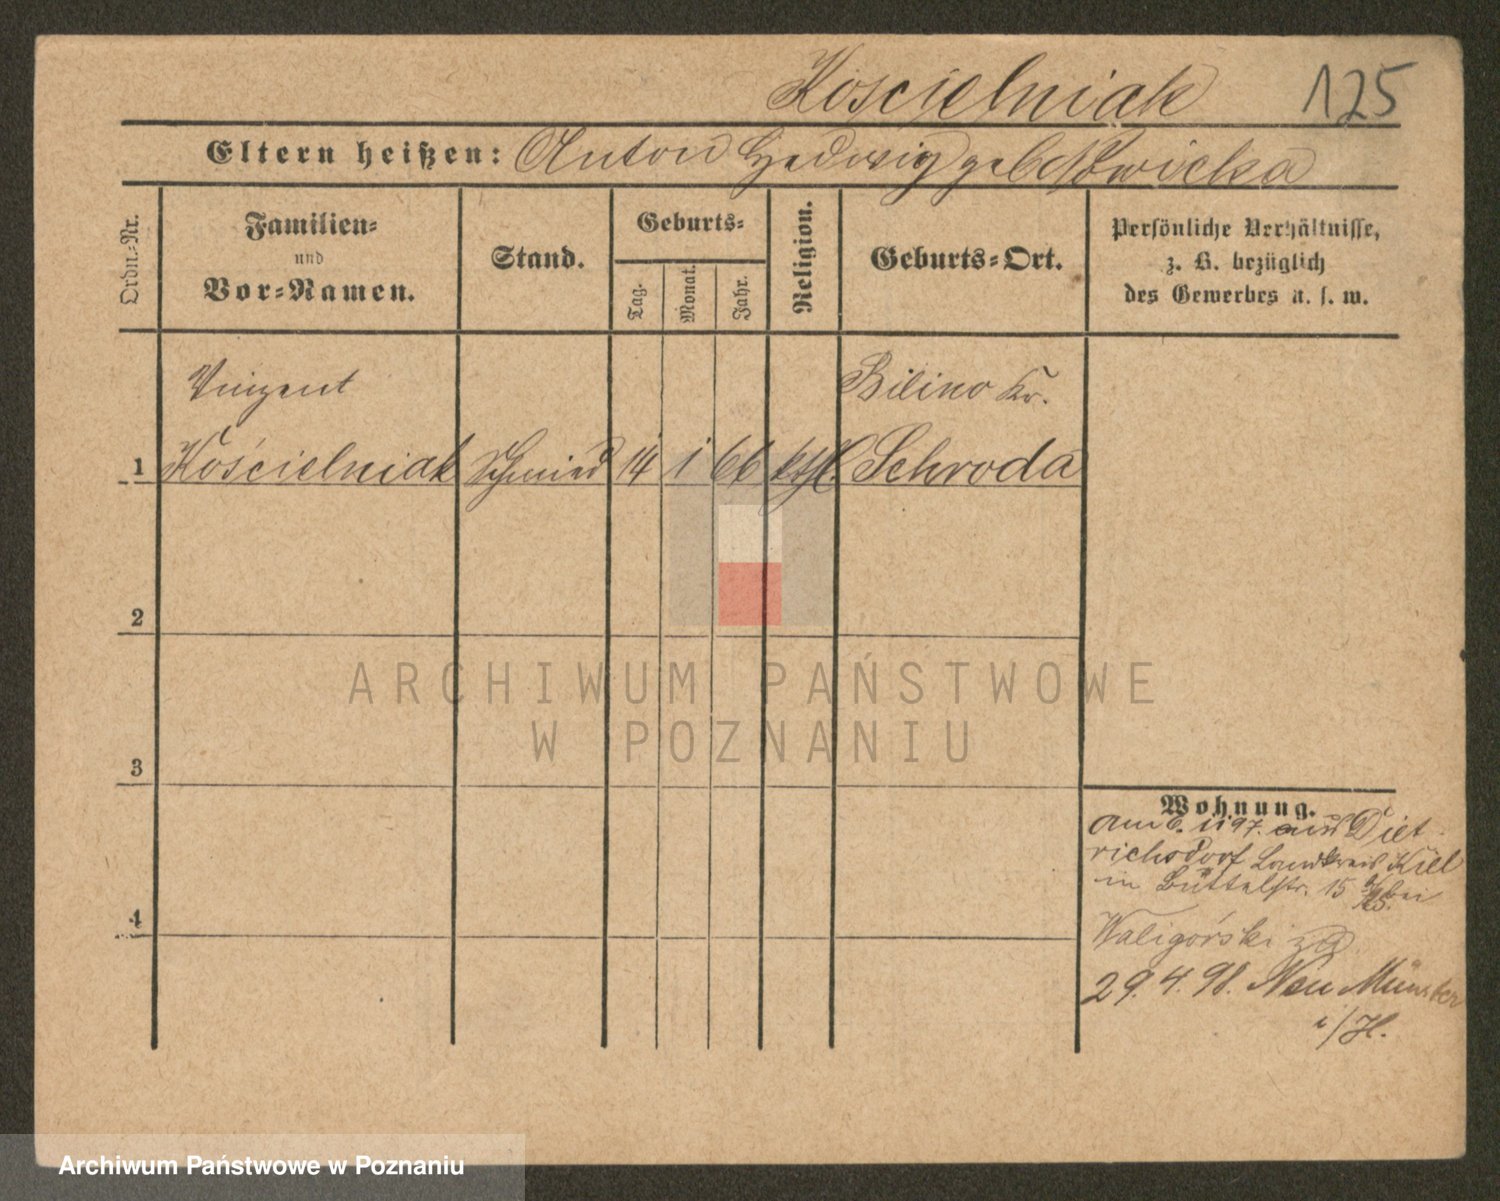 Kościelniak 125
Eltern heißen: Anton Hedwig geb.
Ordn.-Nr.
Familien-
und
Vor-Namen.
Stand.
Geburts-
Tag.
Monat.
Jahr.
Religion.
Geburts-Ort.
Persönliche Verhältnisse,
z. B. bezüglich
des Gewerbes u. s. w.
Vinzent Bilino Kr.
1 Kościelniak Schmied 14 1 66 kthl. Schroda
2
3
4
Wohnung.
am 6. 11 97. aus Diet-
richsdorf Landkreis Kiel
in Büttelstr. 15 bei
Waligórski
29. 4. 98. Neu Münster
i/H.
ARCHIWUM PAŃSTWOWE
W POZNANIU
Archiwum Państwowe w Poznaniu